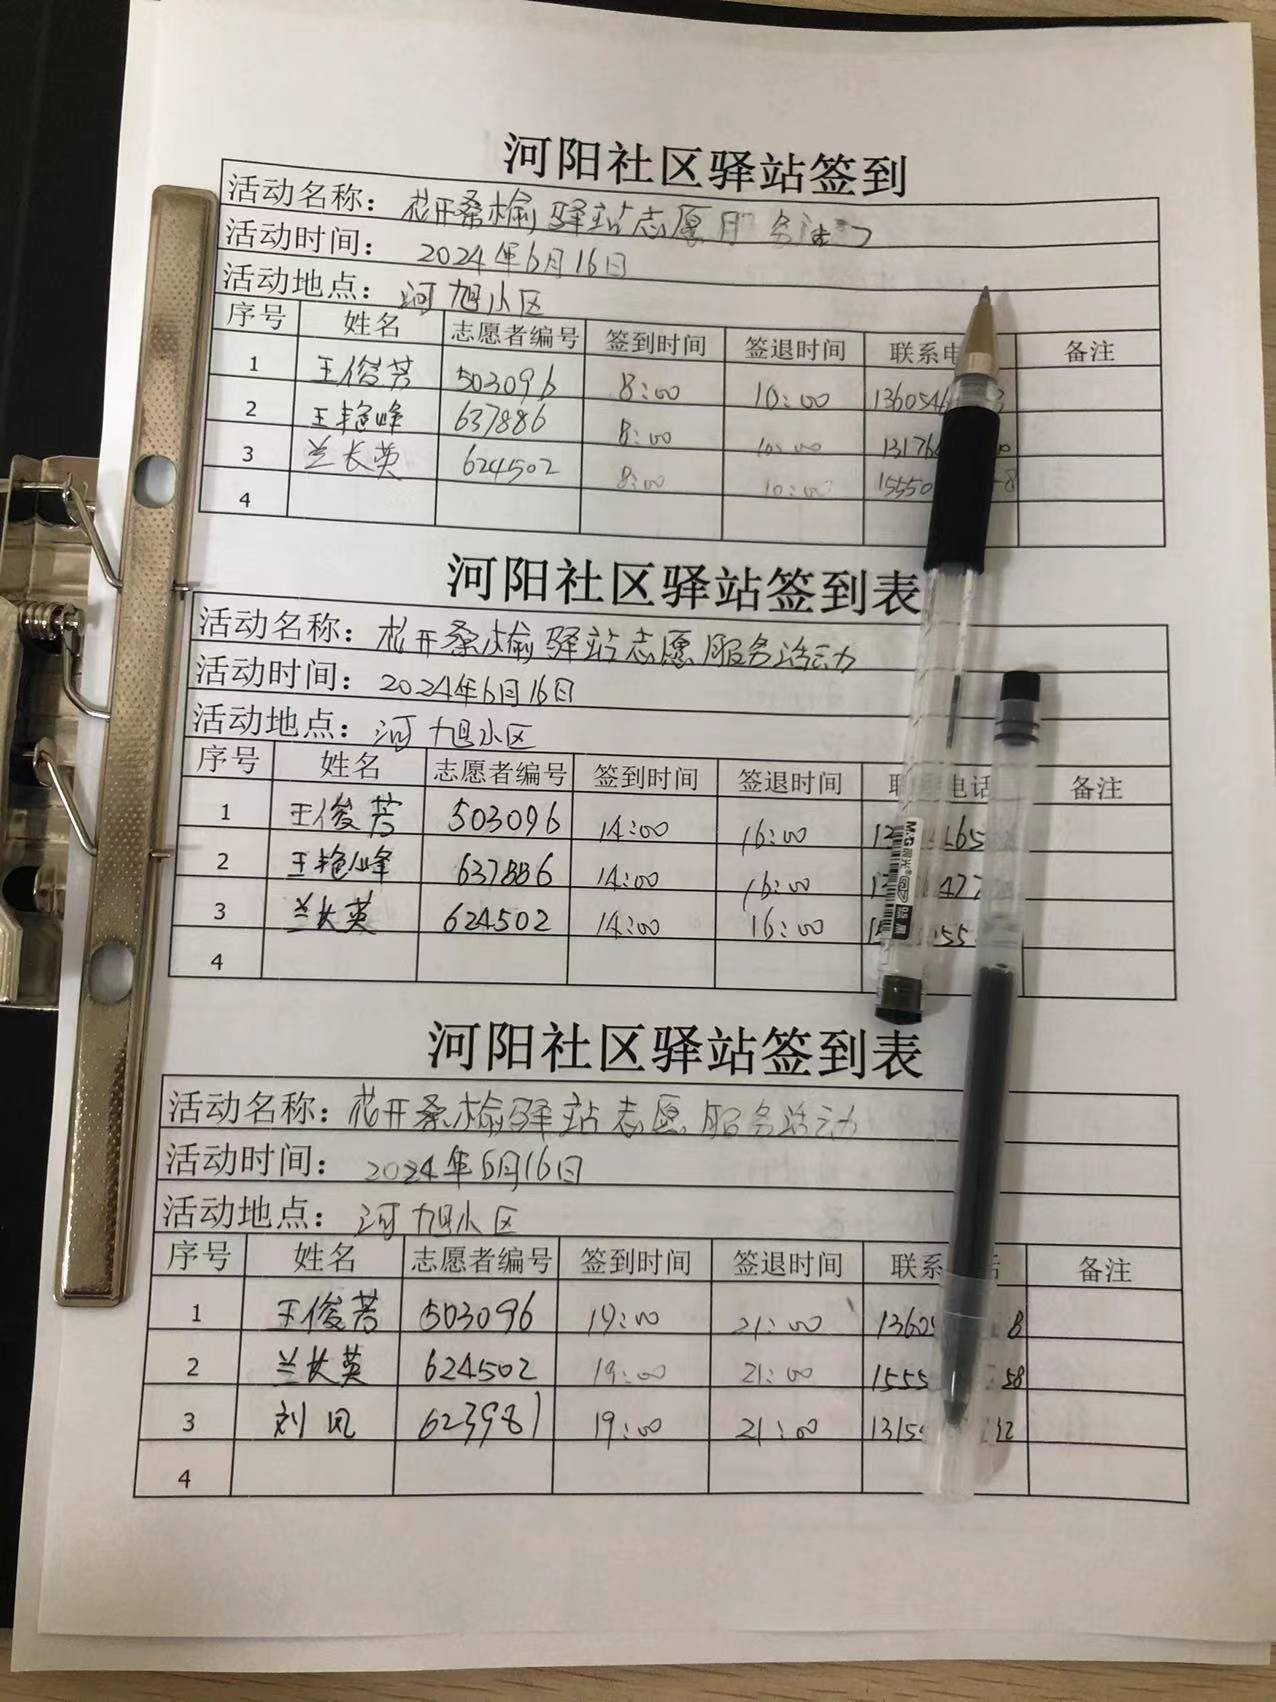 河阳社区驿站签到
活动名称：花开桑榆驿站志愿服务活
活动时间：2024年6月16日
活动地点：河旭小区
序号 姓名 志愿者编号 签到时间 签退时间 联系电 备注
1 王俊芳 503096 8:00 10:00 136054
2 王艳峰 637886 8:00 10:00 13176
3 兰长英 624502 8:00 10:00 15550 8
4
河阳社区驿站签到表
活动名称：花开桑榆驿站志愿服务活动
活动时间：2024年6月16日
活动地点：河旭小区
序号 姓名 志愿者编号 签到时间 签退时间 联 电话 备注
1 王俊芳 503096 14:00 16:00
2 王艳峰 637886 14:00 16:00
3 兰长英 624502 14:00 16:00
4
M&G 晨光
河阳社区驿站签到表
活动名称：花开桑榆驿站志愿服务活动
活动时间：2024年6月16日
活动地点：河旭小区
序号 姓名 志愿者编号 签到时间 签退时间 联系 话 备注
1 王俊芳 503096 19:00 21:00 1360 8
2 兰长英 624502 19:00 21:00 1555 58
3 刘凤 623981 19:00 21:00 1315 32
4